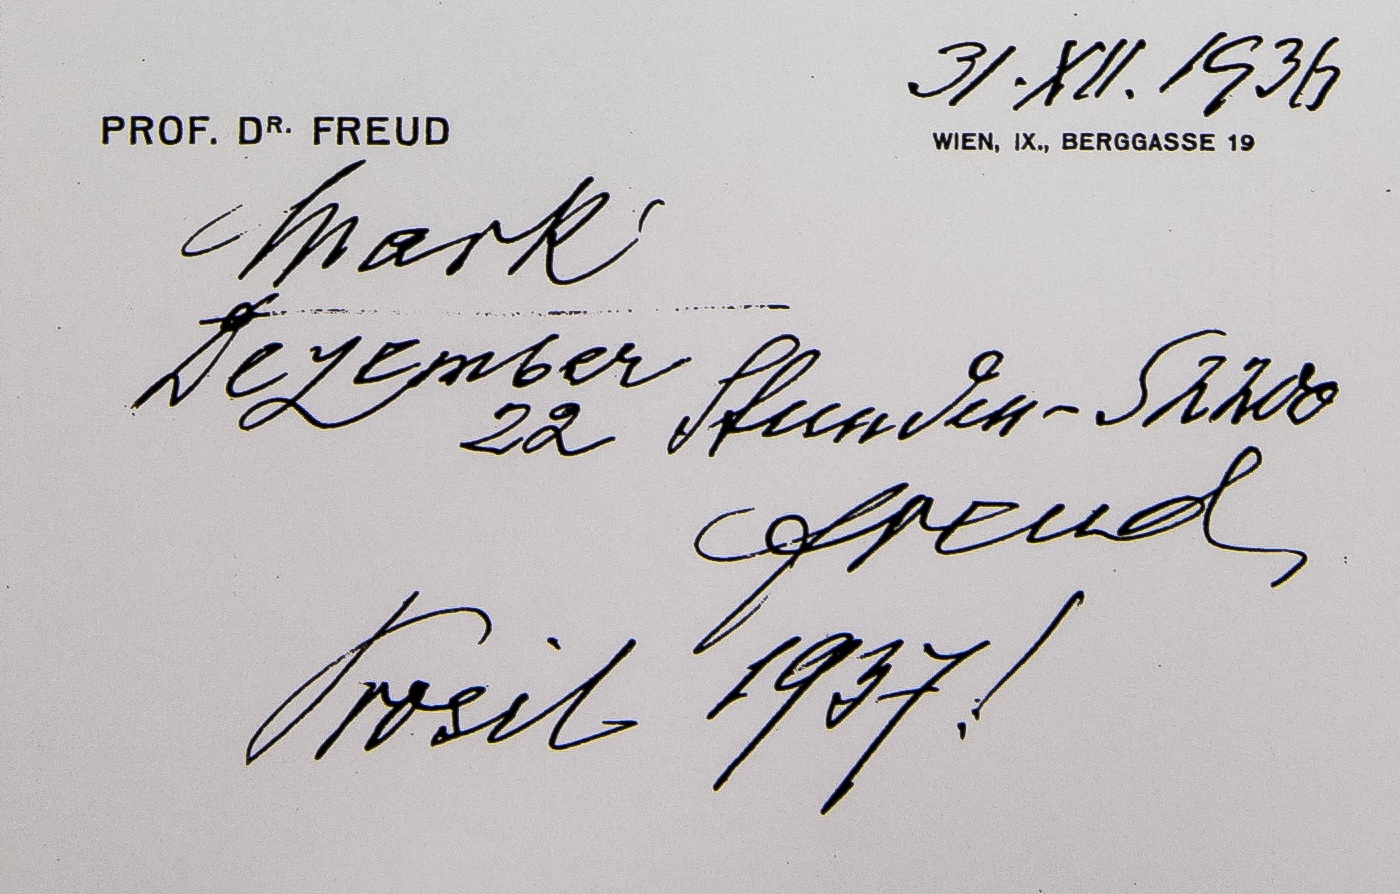 31.XII.1936
PROF. DR. FREUD WIEN, IX., BERGGASSE 19
Mark
Dezember
22 Stunden-S2200
Freud
Prosit 1937!